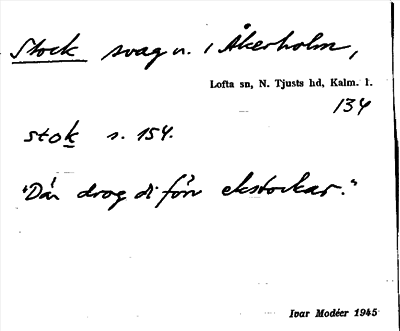 Stock svag n. i Åkerholm,
Lofta sn, N. Tjusts hd, Kalm. l.
134
stok s. 154.
"Där drog di för ekstockar."
Ivar Modéer 1945